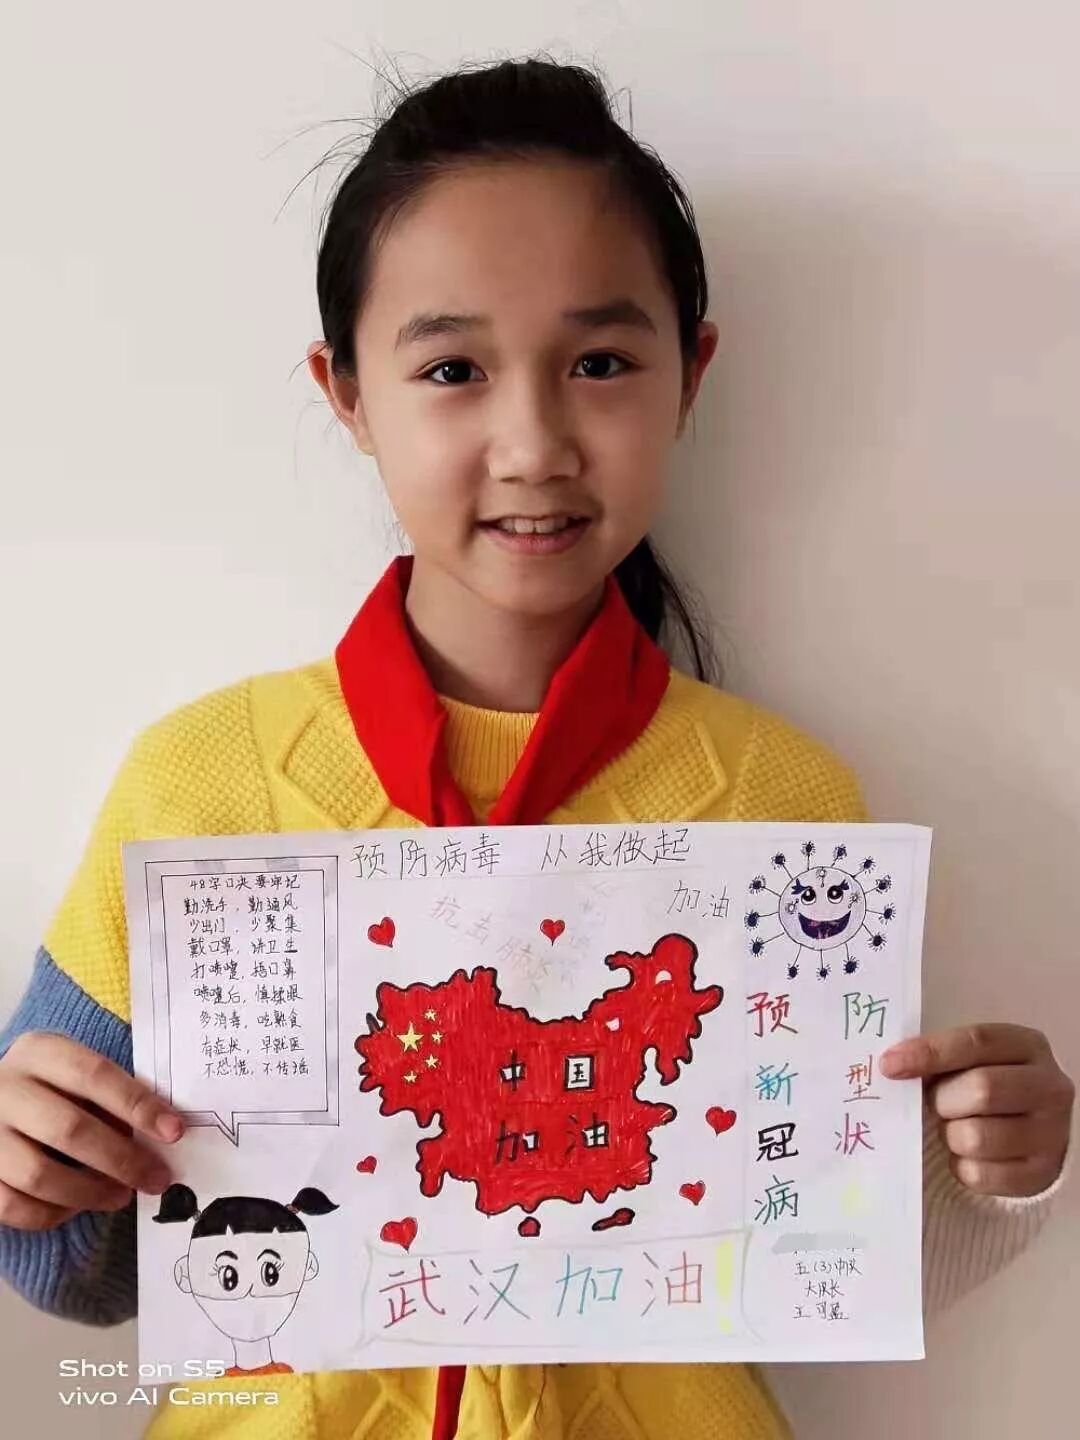 预防病毒 从我做起
48字口决要牢记
勤洗手，勤通风
少出门，少聚集
戴口罩，讲卫生
打喷嚏，捂口鼻
喷嚏后，慎揉眼
多消毒，吃熟食
有症状，早就医
不恐慌，不传谣
加油
抗击肺炎
中国
加油
预防
新型
冠状
病
武汉加油!
五(3)中队
大队长
王可盈
Shot on S5
vivo AI Camera